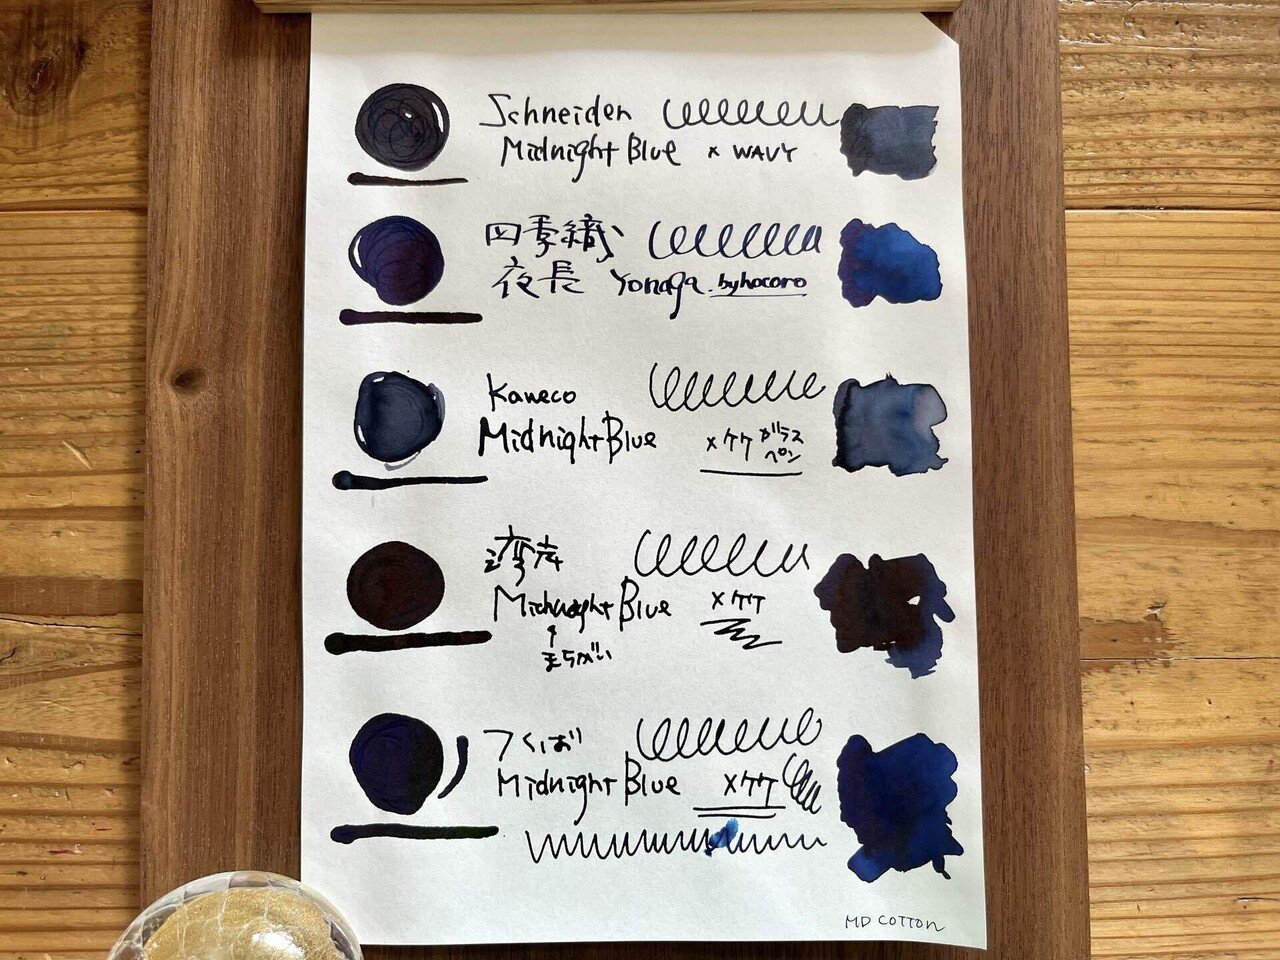 Schneider
Midnight Blue × WAVY
四季織
夜長 Yonaga. byhocoro
Kaneco
Midnight Blue
×ケケ ガラス
ペン
湾岸
Midnaght Blue ×ケケ
↑
まちがい
つくば
Midnight Blue ×ケケ
MD COTTON